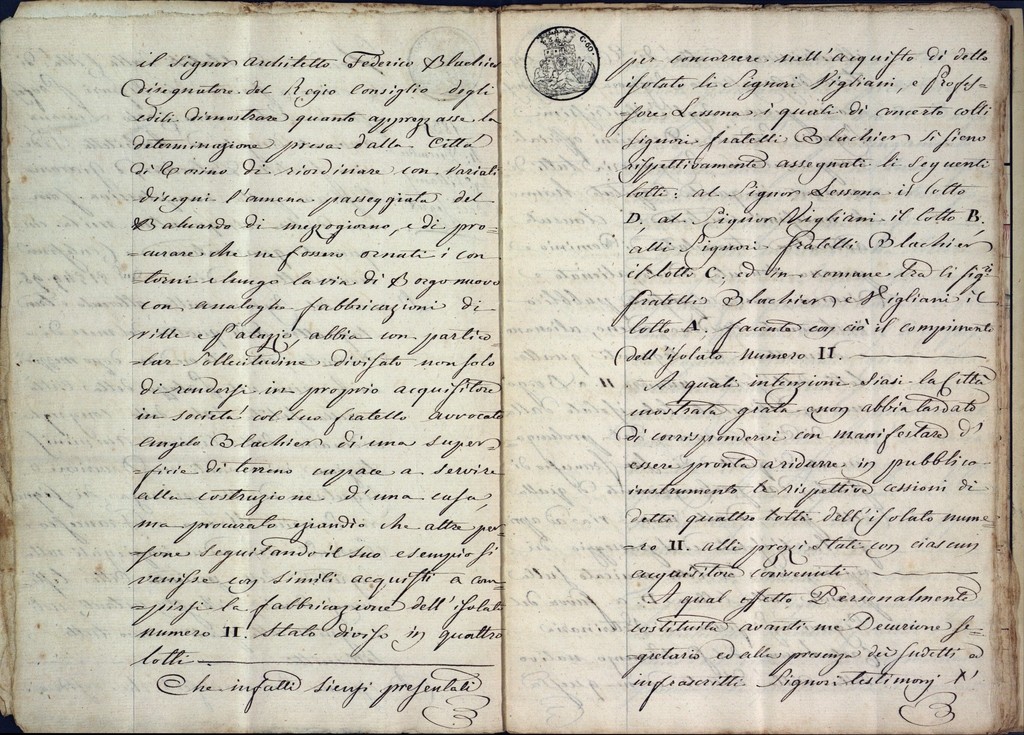 il Signor Architetto Federico Blachier
disegnatore del Regio Consiglio degli
edili dimostrare quanto apprezzasse la
determinazione presa dalla Città
di Torino di riordinare con variati
disegni l'amena passeggiata del
Baluardo di mezzogiorno, e di pro=
=curare che ne fossero ornati i con
=torni e lungo la via di Borgo nuovo
con analoghe fabbricazioni di
ville e Palazzo, abbia con partico
=lar sollecitudine divisato non solo
di rendersi in proprio acquisitore
in società col suo fratello avvocato
Angelo Blachier di una super=
=ficie di terreno capace a servire
alla costruzione d'una casa,
ma procurato eziandio che altre per=
=sone seguitando il suo esempio si
venisse con simili acquisti a com=
=pirsi la fabbricazione dell'isolato
numero II. stato diviso in quattro
lotti
Che infatti siensi presentati
C. 60.
per concorrere nell'acquisto di detto
isolato li Signori Vigliani, e Profes=
=sore Lessona i quali di concerto colli
signori fratelli Blachier si sieno
rispettivamente assegnati li seguenti
lotti: al Signor Lessona il lotto
D, al Signor Vigliani il lotto B,
alli Signori fratelli Blachier
il lotto C, ed in comune tra li sigri
fratelli Blachier e Vigliani il
lotto A, facente con ciò il compimento
dell'isolato numero II.
A quali intenzioni siasi la Città
mostrata grata e non abbia tardato
di corrispondervi con manifestare d'
essere pronta a ridurre in pubblico
instrumento le rispettive cessioni di
detti quattro lotti dell'isolato nume=
=ro II. alli prezzi stati con ciascun
acquisitore convenuti
A qual effetto Personalmente
costituita avanti me Decurione se=
=gretario ed alla presenza dei sudetti ed
infrascritti Signori testimonj